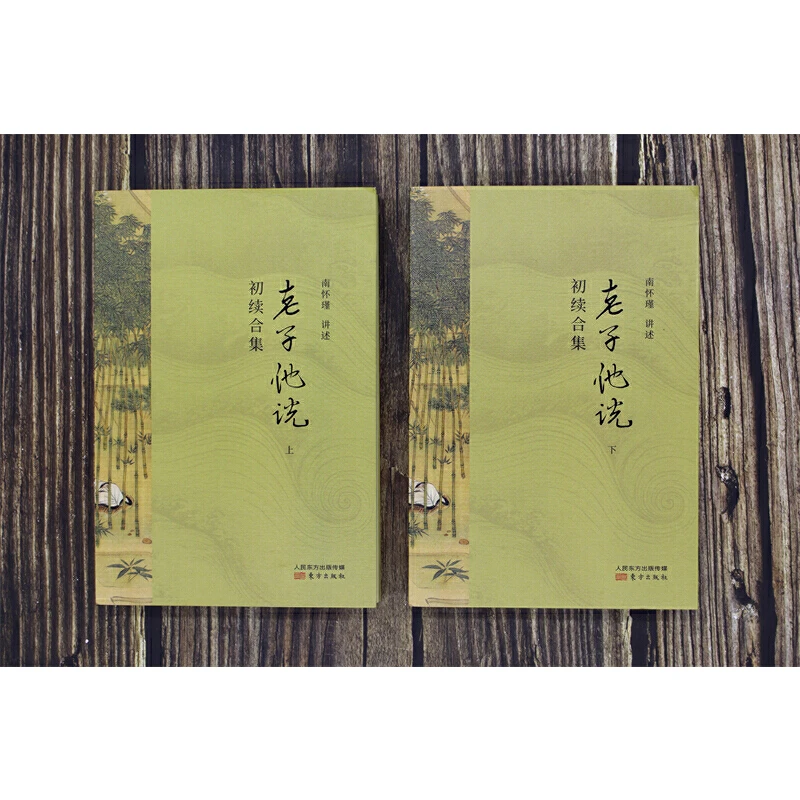 南怀瑾 讲述
老子他说
初续合集
上
人民东方出版传媒
东方出版社
南怀瑾 讲述
老子他说
初续合集
下
人民东方出版传媒
东方出版社